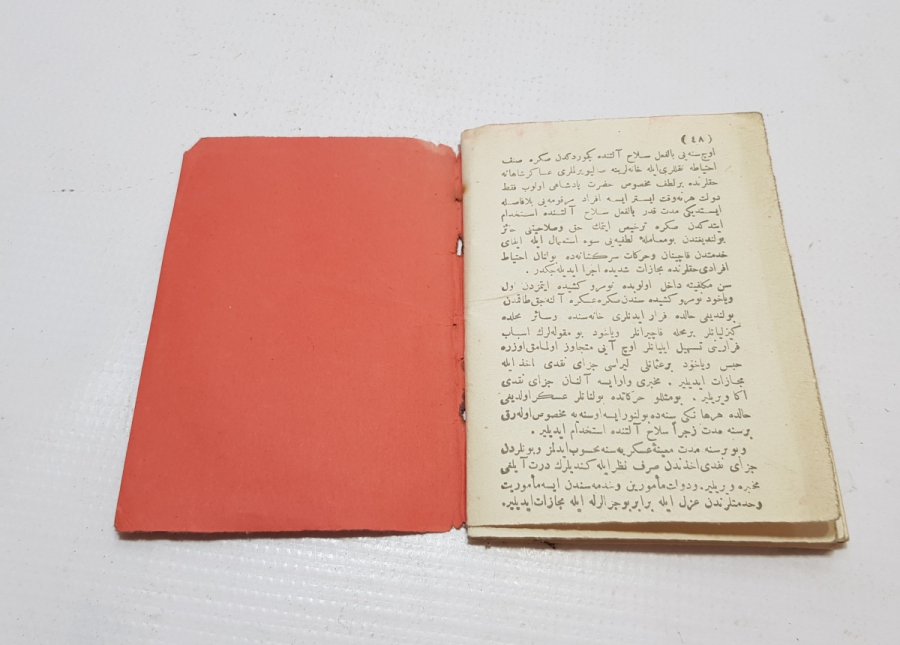 ( ٤٨ )
اوچ سنه‌یی بالفعل سلاح آلتنده كچوردكدن صكره صنف
احتیاطه نقللری ایله خانه‌لرینه صالیویرلملری عساكر شاهانه
حقلرنده بر لطف مخصوص حضرت پادشاهی اولوب فقط
دولت هر نه وقت ایستر ایسه افراد مرقومه‌یی بلافاصله
ایستدیكی مدت قدر بالفعل سلاح آلتنده استخدام
ایتدكدن صكره ترخیص ایتمك حق وصلاحیتنی حائز
بولندیغندن بو معاملهٔ لطفیه‌یی سوء استعمال ایله ایفای
خدمتدن قاچینان وحركات سركشانه‌ده بولنان احتیاط
افرادی حقلرنده مجازات شدیده اجرا ایدیله‌جكدر .
سن مكلفیته داخل اولوبده نومرو كشیده ایتمزدن اول
ویاخود نومرو كشیده سندن صكره عسكره آلنه‌جق طاقمدن
بولندیغی حالده فرار ایدنلری خانه‌سنده وسائر محلده
كیزلیانلر بر محله قاچیرانلر ویاخود بو مقوله‌لرك اسباب
فرارینی تسهیل ایلیانلر اوچ آیی متجاوز اولمامق اوزره
حبس ویاخود بر عثمانلی لیراسی جزای نقدی اخذ ایله
مجازات ایدیلیر . مخبری وار ایسه آلنان جزای نقدی
اكا ویریلیر . بو مثللو حركاتده بولنانلر عسكر اولدیغی
حالده هر هانكی سنه‌ده بولنور ایسه او سنه‌یه مخصوص اوله‌رق
بر سنه مدت زجراً سلاح آلتنده استخدام ایدیلیر .
وبو بر سنه مدت معینهٔ عسكریه‌سنه محسوب ایدلمز وبونلردن
جزای نقدی اخذندن صرف نظر ایله كندیلرك درت آیلغی
مخبره ویریلیر . ودولت مأمورین وخدمه‌سندن ایسه مأموریت
وخدمتلرندن عزل ایله برابر بو جزالرله ایله مجازات ایدیلیر .